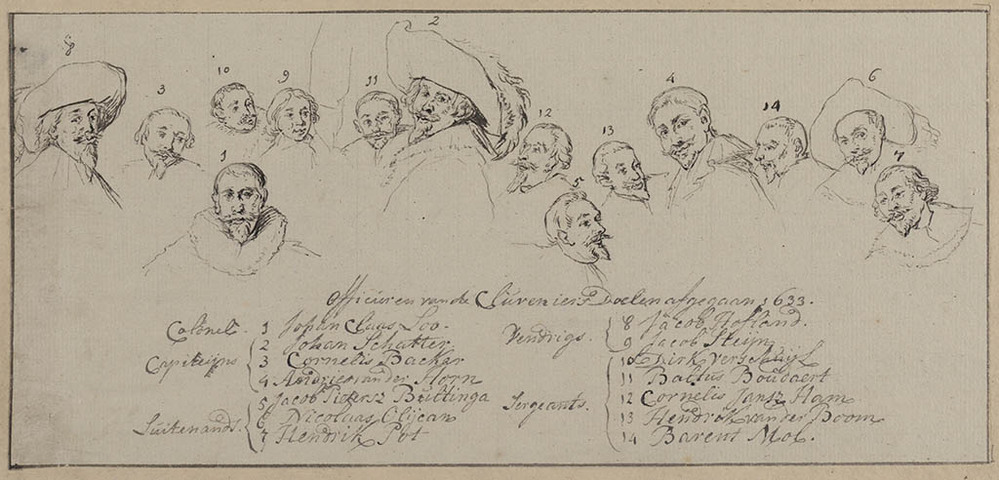 2
8
3
10
9
11
4
14
6
12
13
1
5
7
Officieren van de Cluveniers Doelen afgegaan 1633.
Colonel. 1 Johan Claas Loo.
Capiteijns 2 Johan Schatter
3 Cornelis Backer
4 Andries van der Horn
Luitenands. 5 Jacob Pietersz Buttinga
6 Nicolaas Olijcan
7 Hendrik Pot
Vendrigs. 8 Jacob Hofland.
9 Jacob Steijn
Sergeants. 10 Dirk Verschuijl
11 Baltus Boudaert
12 Cornelis Jansz Ham
13 Hendrik van der Boom
14 Barent Mol.